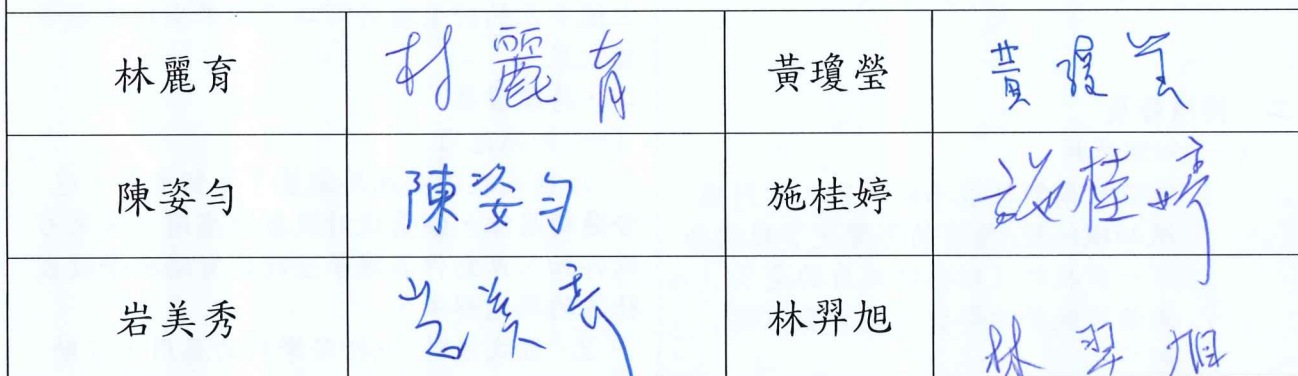 林麗育 林麗育 黃瓊瑩 黃瓊瑩
陳姿勻 陳姿勻 施桂婷 施桂婷
岩美秀 岩美秀 林羿旭 林羿旭